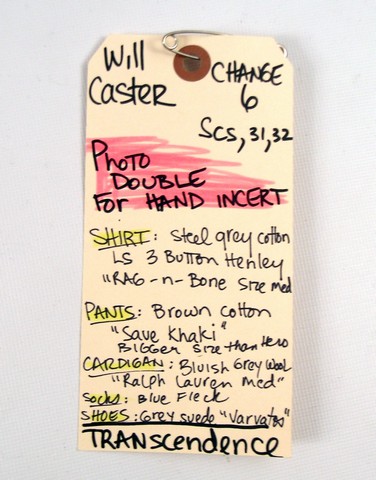 Will CHANGE
Caster 6
Scs, 31, 32
Photo
DOUBLE
For HAND INCERT
SHIRT: Steel grey cotton
LS 3 Button Henley
"RAG-n-Bone size med
PANTS: Brown cotton
"Save Khaki"
BIGGER Size than Hero
CARDIGAN: Bluish Grey Wool
"Ralph Lauren Med"
Socks: Blue Fleck
SHOES: Grey suede "Varvatos"
TRANSCENDENCE